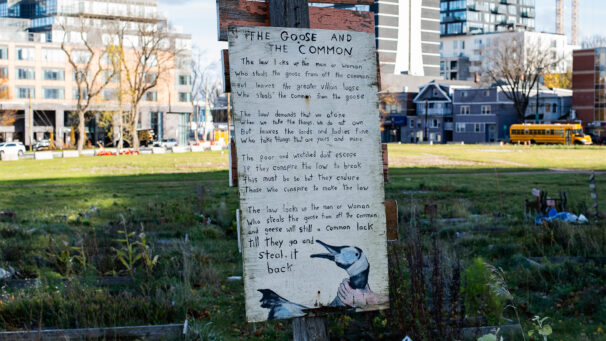 THE GOOSE AND
THE COMMON
The law locks up the man or woman
Who steals the goose from off the common
But leaves the greater villain loose
Who steals the common from the goose
The law demands that we atone
When we take the things we do not own
But leaves the lords and ladies fine
Who take things that are yours and mine
The poor and wretched don't escape
If they conspire the law to break
This must be so but they endure
Those who conspire to make the law
The law locks up the man or woman
Who steals the goose from off the common
and geese will still a common lack
till they go and
steal it
back